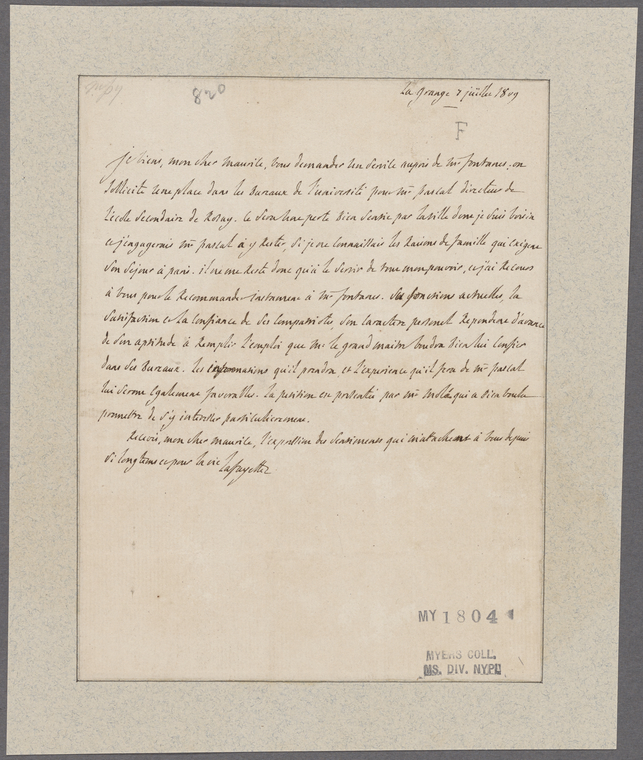 820
La Grange 7 juillet 1809
F
je viens, mon cher maurice, vous demander un service auprès de mr fontanes; on
sollicite une place dans les Bureaux de l'université pour mr pascal directeur de
l'école secondaire de Rosay. ce sera une perte bien sentie par la ville dont je suis voisin
et j'engagerais mr pascal à y rester, si je ne connaissais les Raisons de famille qui exigent
son séjour à paris. il ne me reste donc qu'à le servir de tout mon pouvoir, et j'ai Recours
à vous pour le Recommander instament à mr fontanes. Ses fonctions actuelles, la
satisfaction et la confiance de ses compatriotes, son caractère personel Repondent d'avance
de son aptitude à Remplir l'emploi que mr le grand maitre voudra bien lui confier
dans ses Bureaux. les informations qu'il prendra et l'experience qu'il fera de mr pascal
lui seront egalement favorables. la petition est présentée par mr molé qui a bien voulu
promettre de s'y interesser particulierement.
Recevez, mon cher maurice, l'expression des sentiments qui m'attachent à vous depuis
si longtems et pour la vie Lafayette
MY 1804
MYERS COLL.
MS. DIV. NYPL